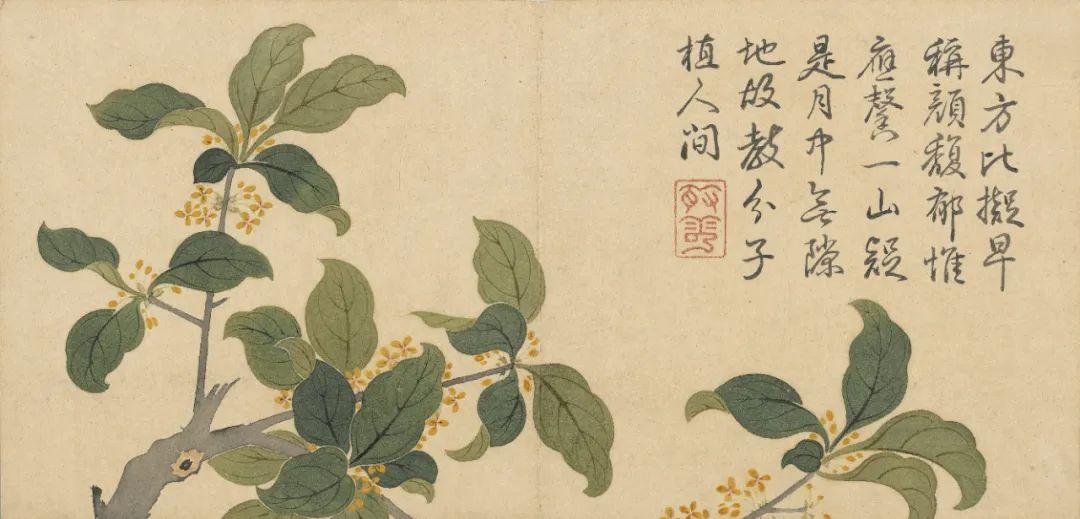 東方比擬早
稱顏馥郁惟
應馨一山疑
是月中無隙
地故教分子
植人間